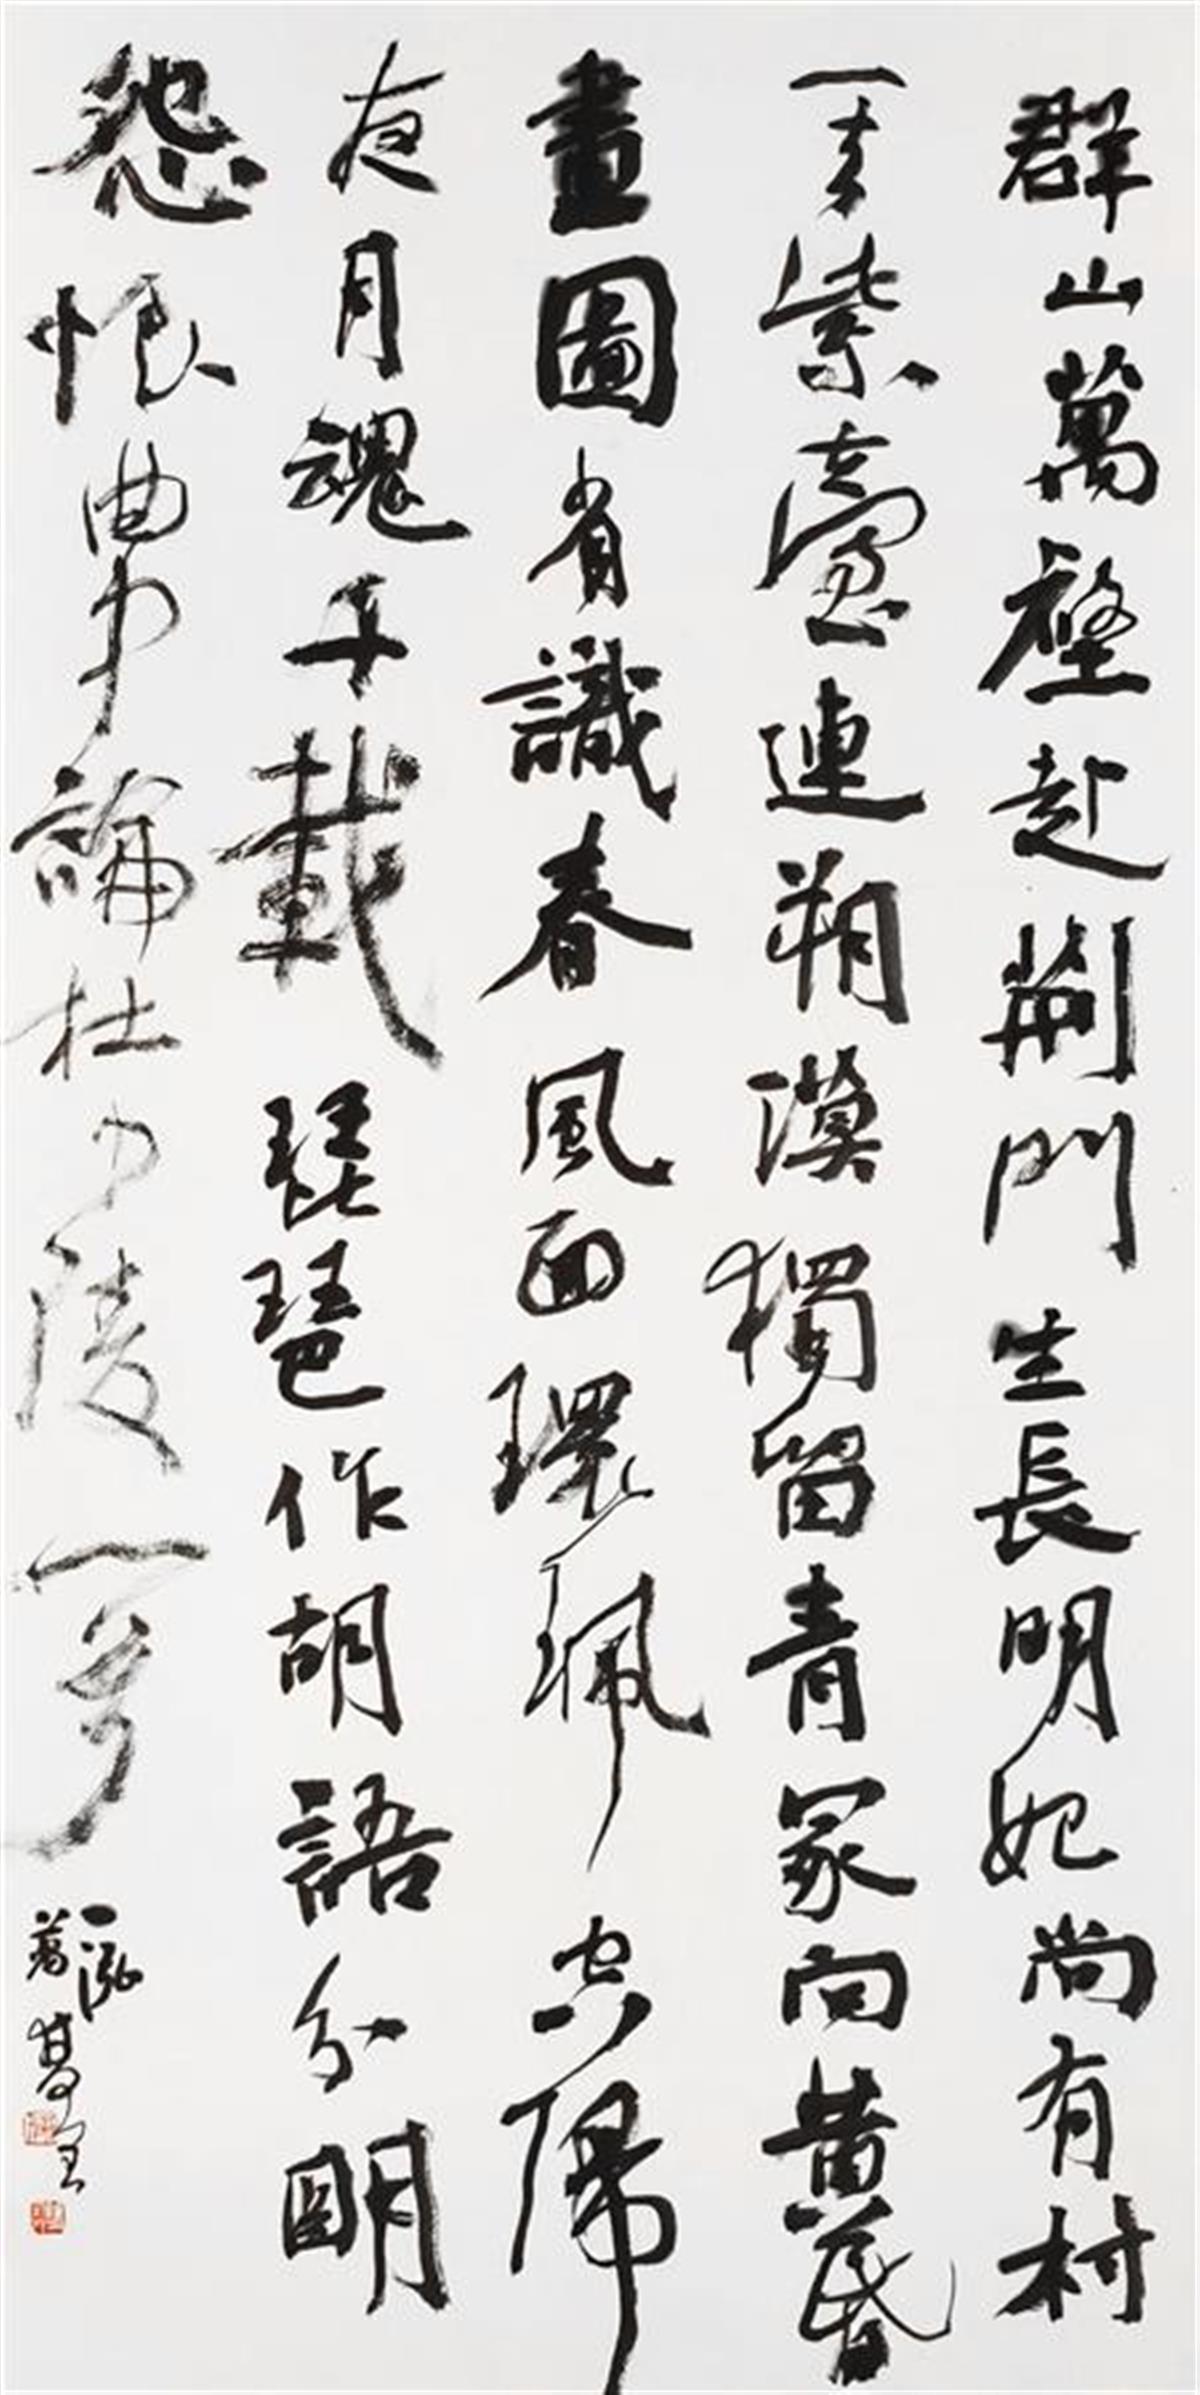 群山萬壑赴荊門生長明妃尚有村
一去紫臺連朔漠獨留青冢向黃昏
畫圖省識春風面環珮空歸
夜月魂千載琵琶作胡語分明
怨恨曲中論杜少陵一首